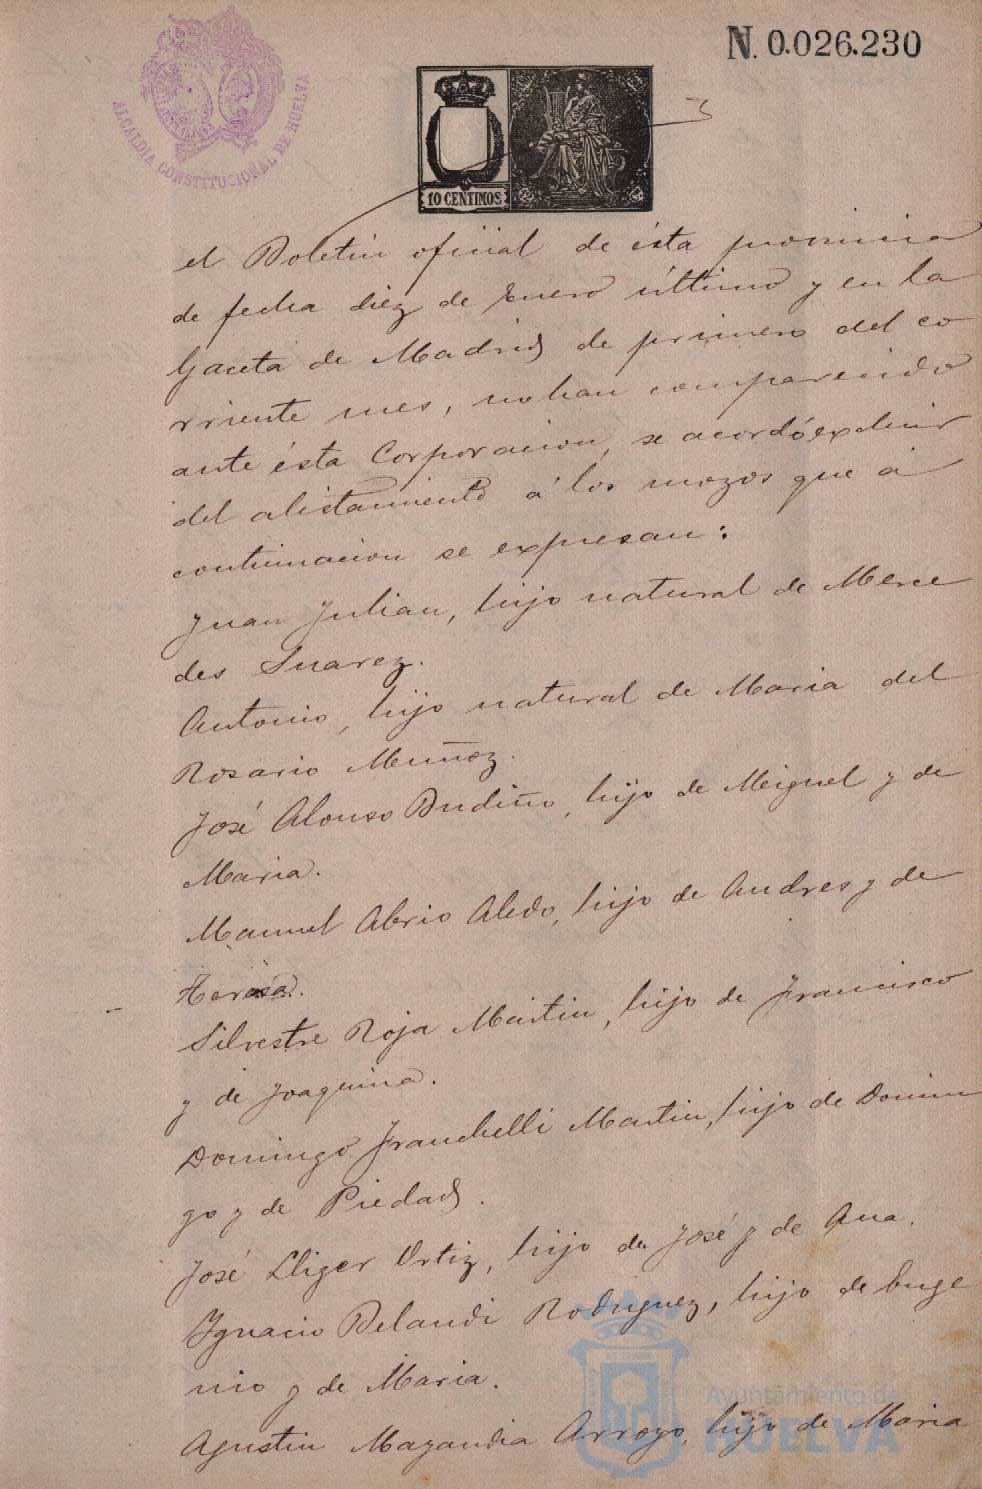 N. 0.026.230
ALCALDÍA CONSTITUCIONAL DE HUELVA
10 CENTIMOS
el Boletin oficial de ésta provincia
de fecha diez de Enero último y en la
Gaceta de Madrid de primero del co
rriente mes, no han comparecido
ante ésta Corporacion, se acordó excluir
del alistamiento á los mozos que á
continuacion se expresan:
Juan Julian, hijo natural de Merce
des Suarez.
Antonio, hijo natural de Maria del
Rosario Muñoz.
José Alonso Pudiño, hijo de Miguel y de
Maria.
Manuel Abrio Aledo, hijo de Andres y de
Teresa.
Silvestre Roja Martin, hijo de Francisco
y de Joaquina.
Domingo Franchelli Martin, hijo de Domin
go y de Piedad.
José Lliger Ortiz, hijo de José y de Ana.
Ignacio Belandi Rodriguez, hijo de Euge
nio y de Maria.
Agustin Magandia Arroyo, hijo de Maria
Ayuntamiento de
HUELVA